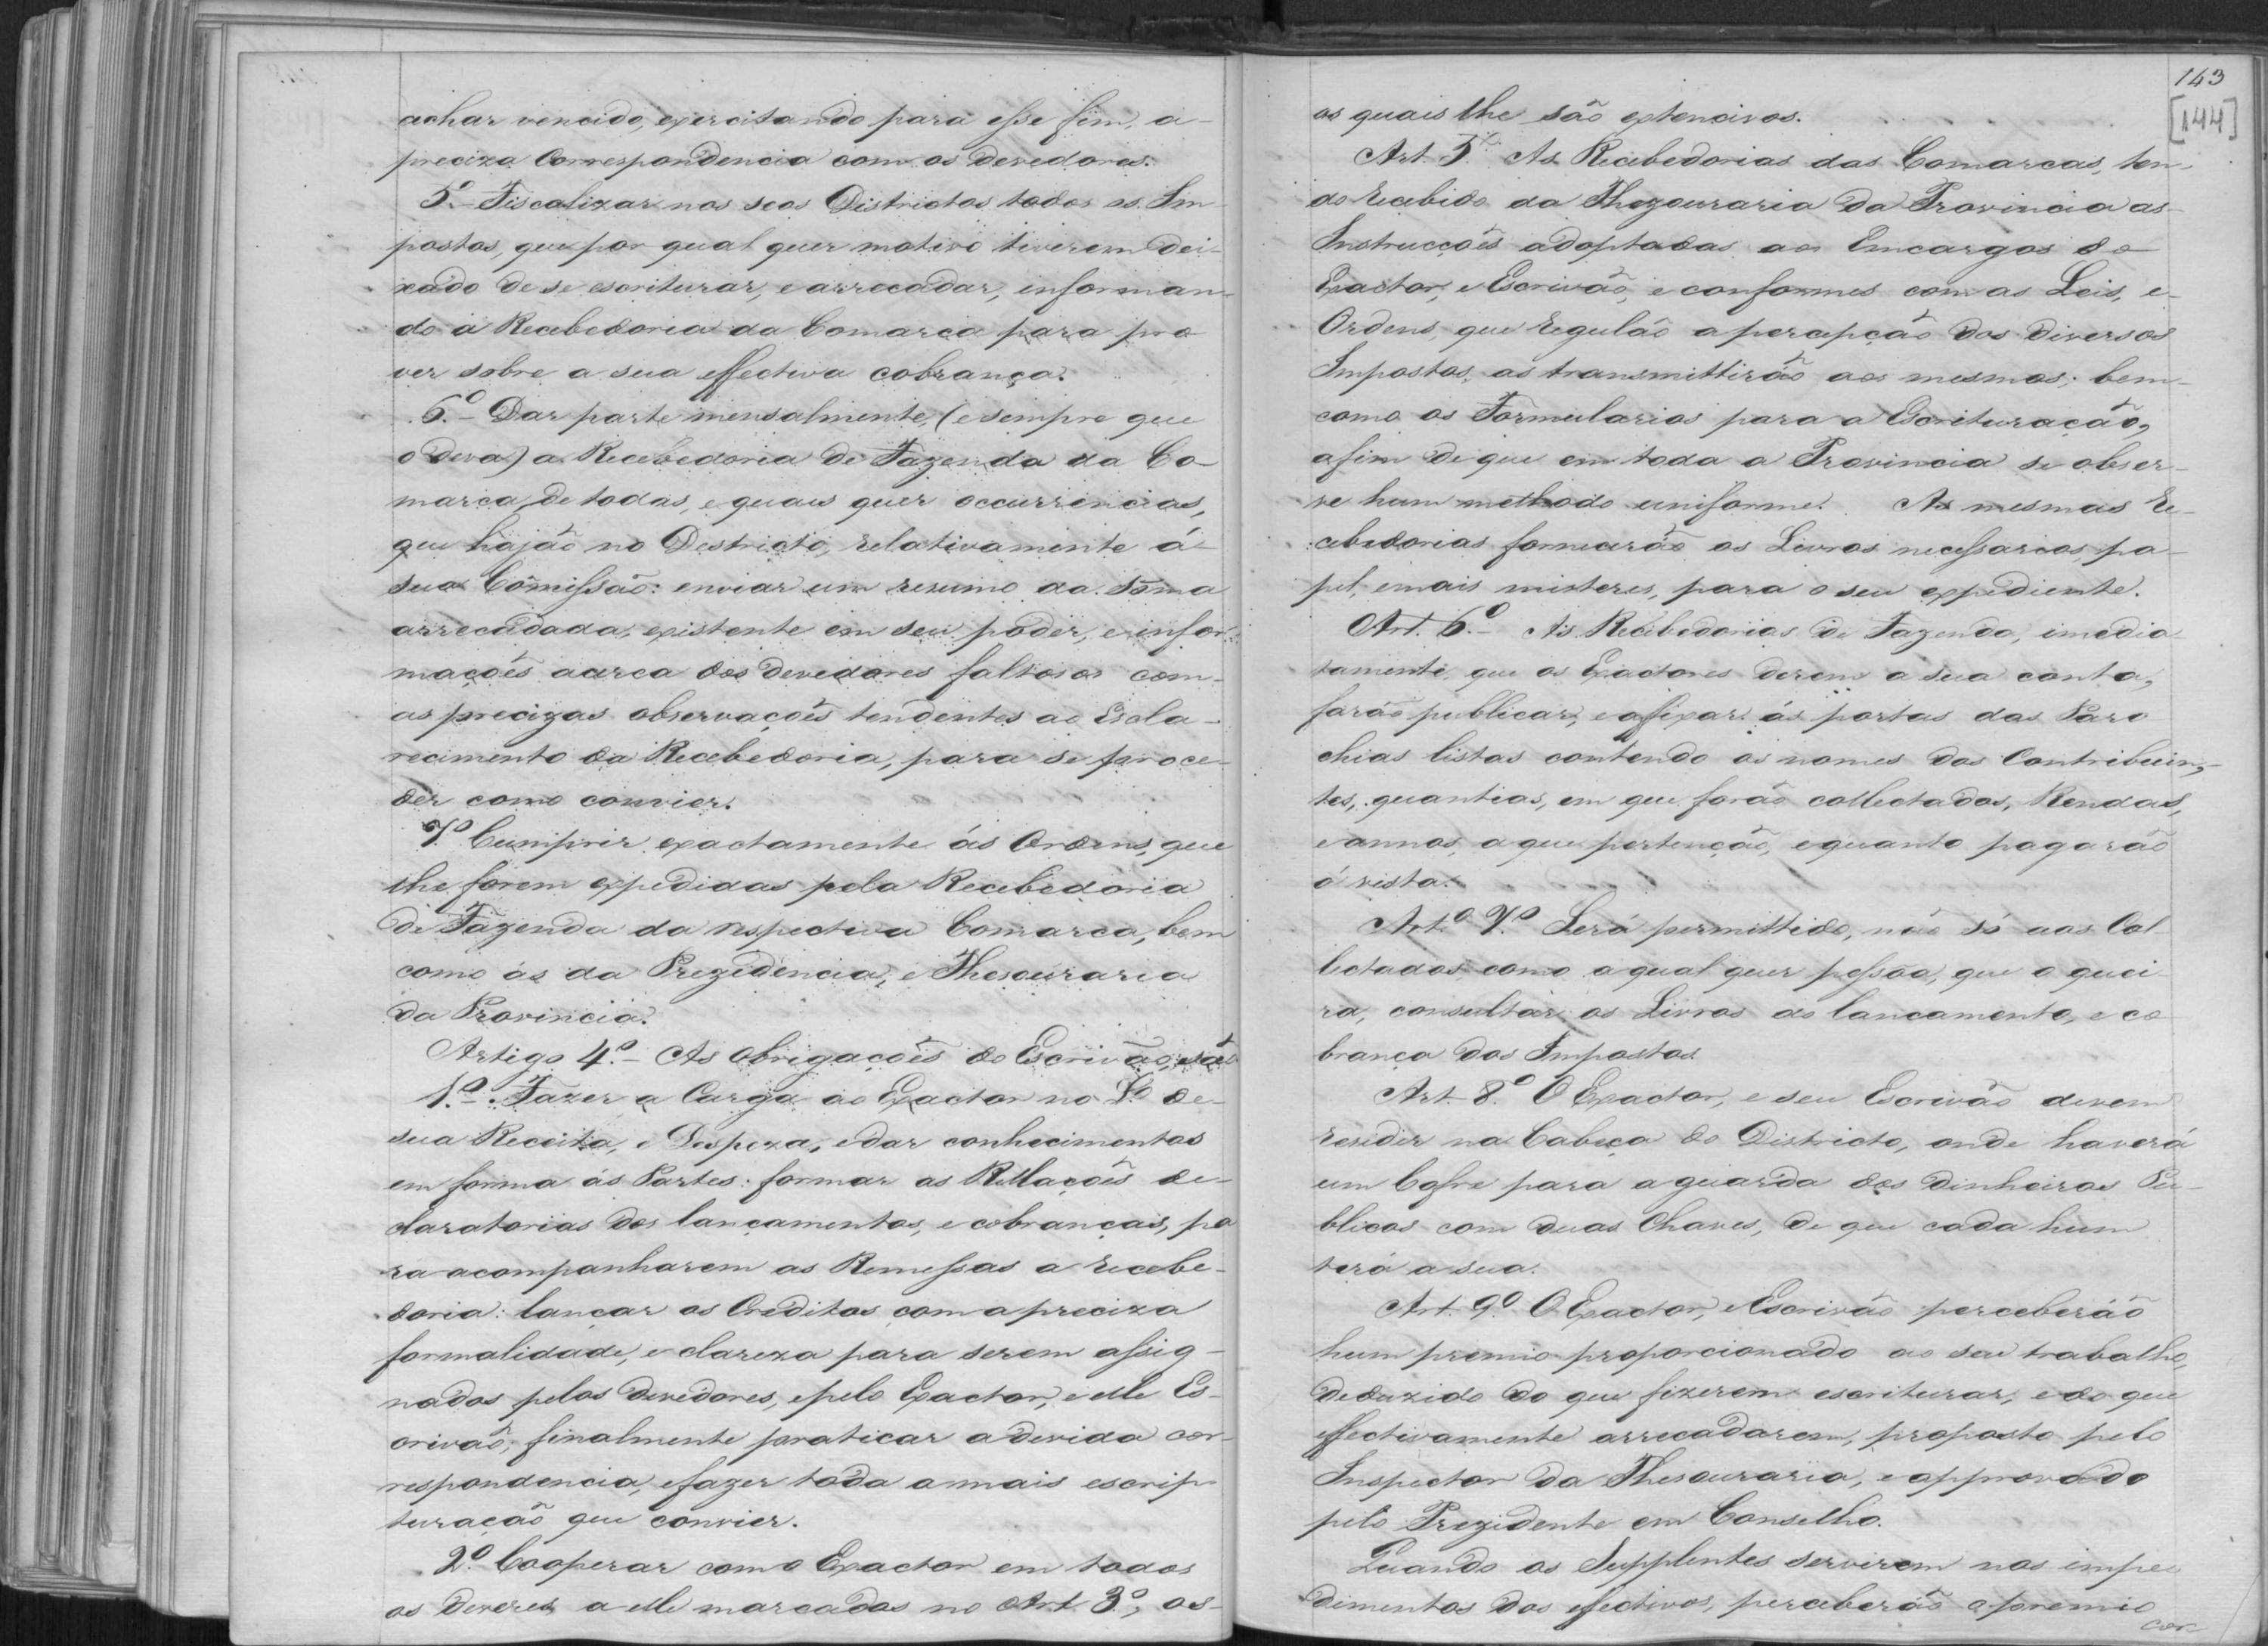 achar vencido, exercitando para esse fim, a-
preciza Correspondencia com os devedores.
5.º- Fiscalizar nos seos Districtos todos os Im-
postos, que por qual quer motivo tiverem dei-
xado de se escriturar, e arrecadar, informan-
do á Recebedoria da Comarca para pro
ver sobre a sua effectiva cobrança.
6.º- Dar parte mensalmente, (e sempre que
o deva) a Recebedoria de Fazenda da Co-
marca, de todas, e quais quer occurrencias,
que hajão no Destricto, relativamente á-
sua Comissão: enviar um resumo da soma
arrecadada, existente em seu poder, e infor-
maçoẽs acerca dos devedores faltosos com-
as precizas observaçoẽs tendentes ao Escla-
recimento da Recebedoria, para se proce-
der como convier.
7.º Cumprir exactamente ás Ordens, que
lhe forem expedidas pela Recebedoria
de Fazenda da respectiva Comarca, bem
como ás da Prezidencia, e Thesouraria
da Provincia.
Artigo 4.º- As obrigaçoẽs do Escrivão, são
1.º- Fazer a Carga ao Exactor no L.º de-
sua Receita, e Despeza, e dar conhecimentos
em forma ás Partes: formar as Rellaçoẽs de-
claratorias dos lançamentos, e cobranças, pa
ra acompanharem as Remessas a recebe-
doria: lançar os Creditos com a preciza
formalidade, e clareza para serem assig-
nados pelos devedores, e pelo Exactor, e elle Es-
crivaõ; finalmente praticar a devida cor-
respondencia, e fazer toda a mais escrip-
turação que convier.
2.º Cooperar com o Exactor em todos
os deveres a elle marcados no Art. 3.º, os-
143
[144]
as quais lhe são extencivos.
Art. 5.º As Recebedorias das Comarcas, ten-
do recebido da Thezouraria da Provincia as-
Instrucçoẽs adoptadas aos Emcargos do
Exactor, e Escrivão, e conformes com as Leis, e-
Ordens, que regulão a percepção dos diversos
Impostos, as transmittirão aos mesmos; bem-
como os Formularios para a Escrituração,
afim de que em toda a Provincia se obser-
ve hum methodo uniforme. As mesmas Re-
cebedorias fornecerão os Livros necessarios, pa-
pel, e mais misteres, para o seu expediente.
Art. 6.º- As Recebedorias de Fazenda, imedia
tamente que os Exactores derem a sua conta,
farão publicar, e afixar ás portas das Paro
chias listas contendo os nomes dos Contribuin-
tes, quantias, em que forão collectados, Rendas,
e annos, a que pertenção, e quanto pagarão
á vista.
Artº 7.º Será permittido, não só aos Col-
lectados como a qual quer pessoa, que o quei
ra, consultar os Livros do lancamento, e co
brança dos Impostos
Art. 8.º O Exactor, e seu Escrivão devem
residir na Cabeça do Districto, onde haverá
um Cofre para a guarda dos dinheiros Pu-
blicos com duas Chaves, de que cada hum
terá a sua.
Art. 9.º O Exactor, e Escrivão perceberáõ
hum premio proporcionado ao seu trabalho,
deduzido do que fizerem escriturar, e do que
effectivamente arrecadarem, proposto pelo
Inspector da Thesouraria, e approvado
pelo Prezidente em Conselho.
Quando os Supplentes servirem nos impe
dimentos dos efectivos, perceberão o premio
cor